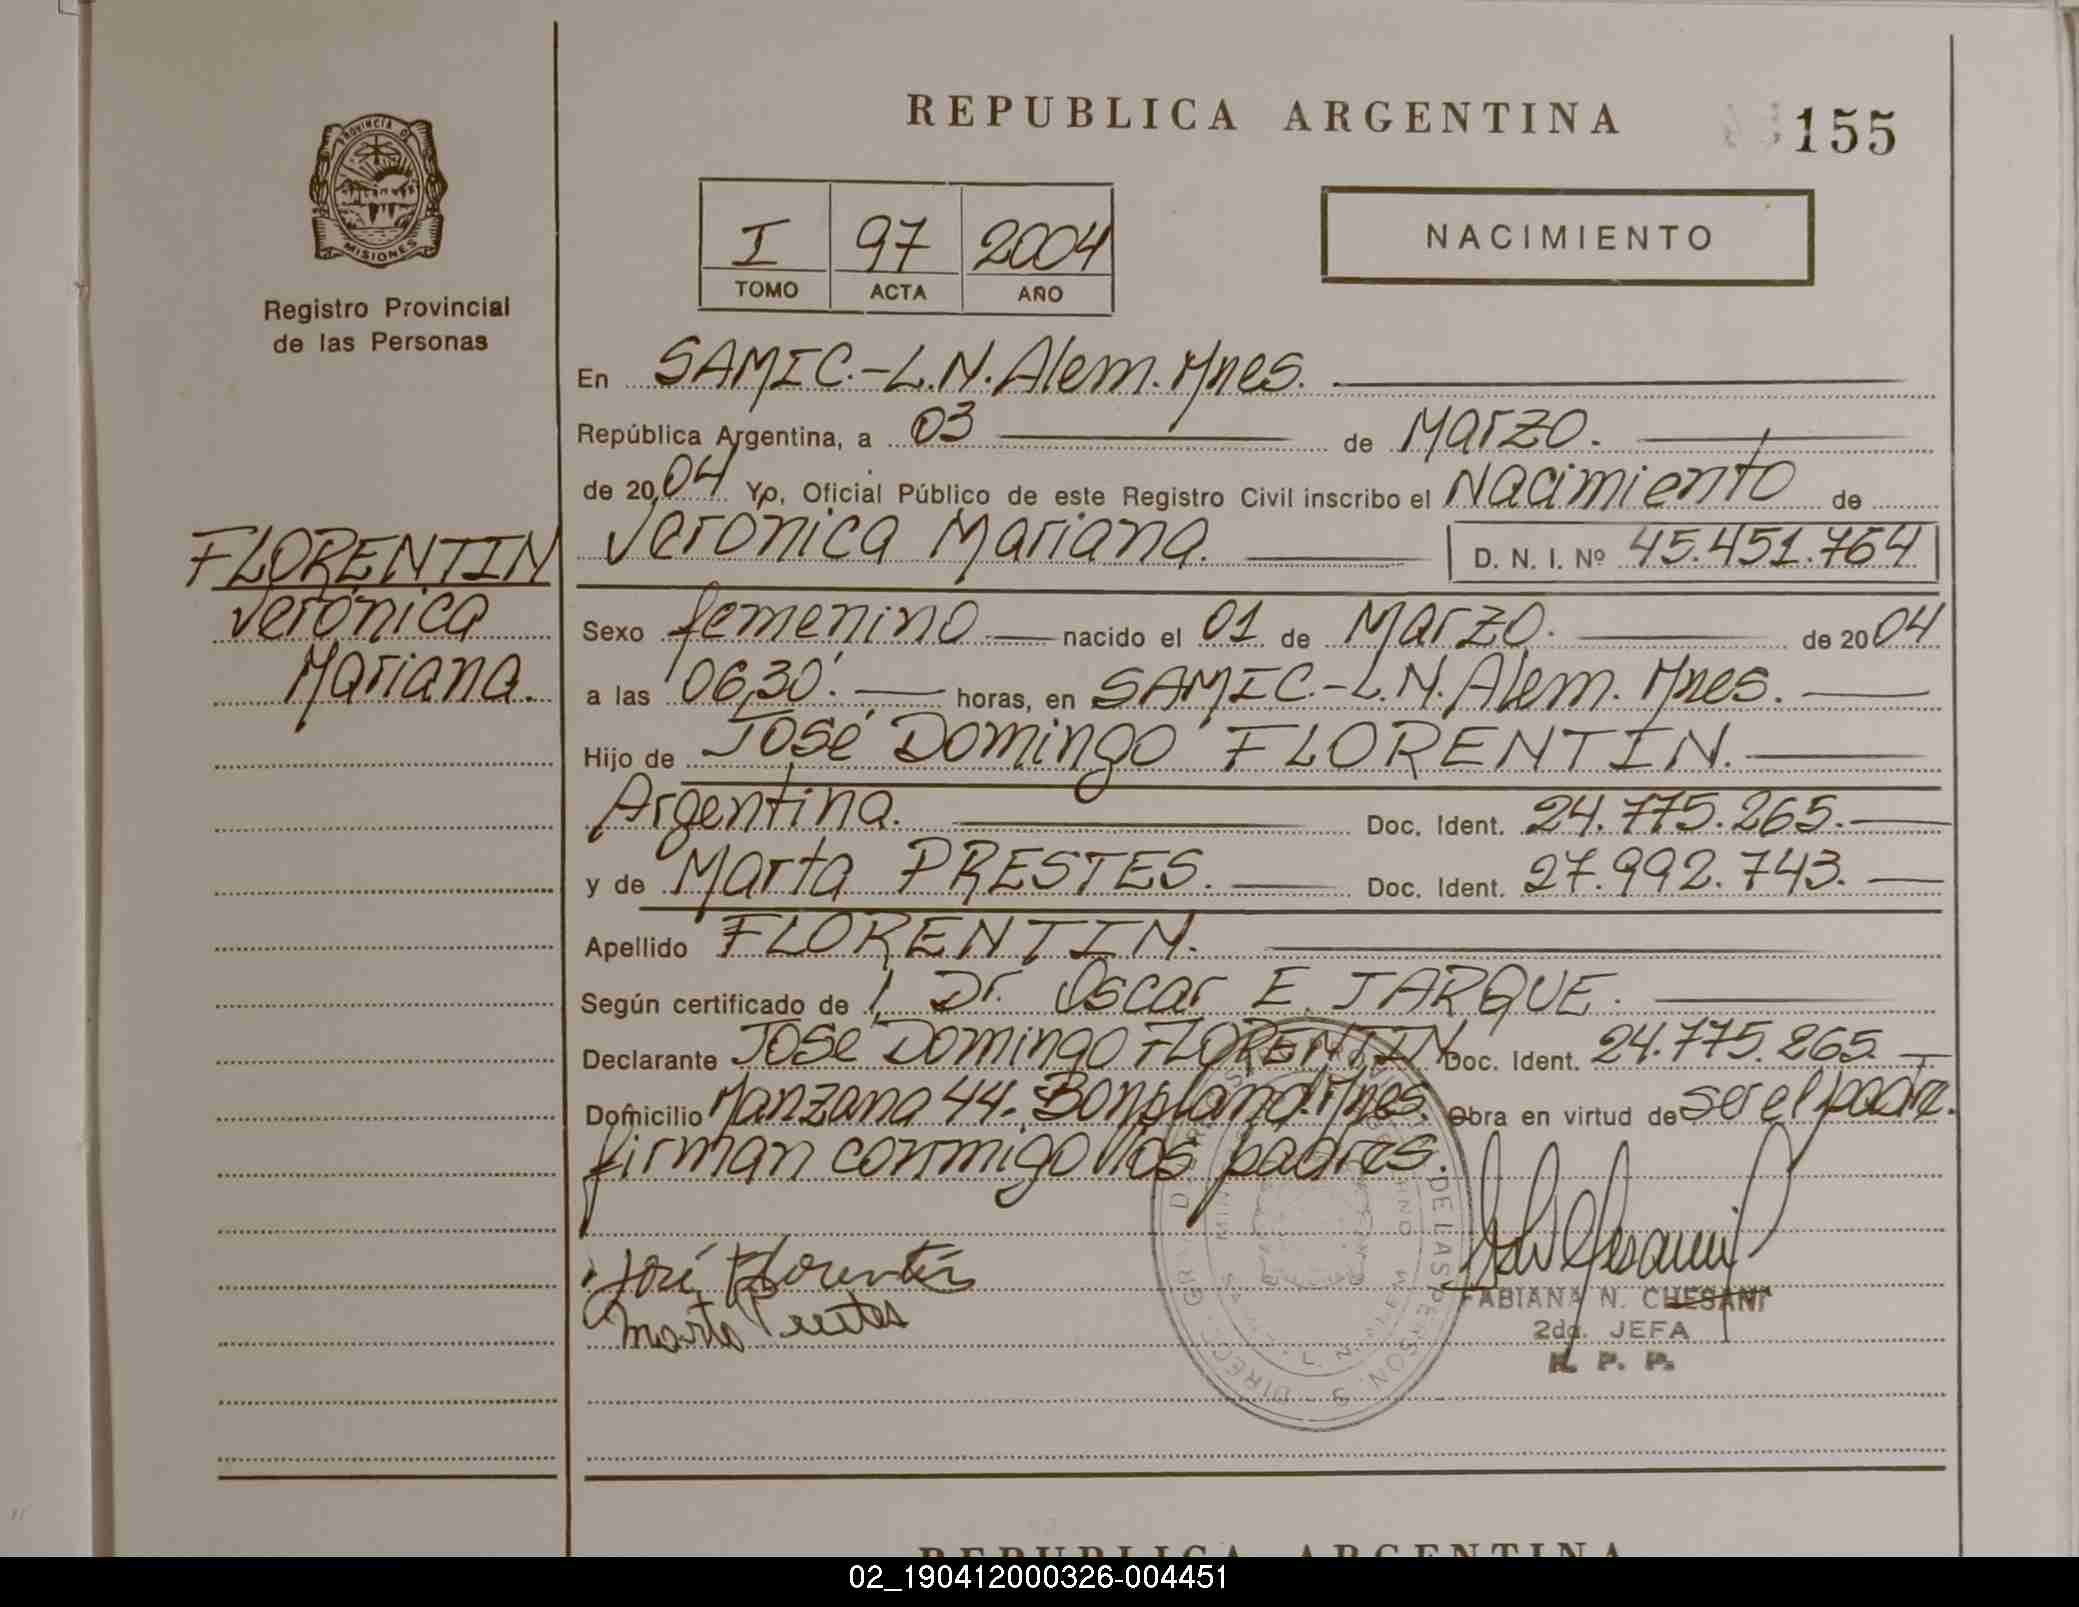 REPUBLICA ARGENTINA
155
PROVINCIA DE
MISIONES
Registro Provincial
de las Personas
I 97 2004
TOMO ACTA AÑO
NACIMIENTO
En SAMIC.-L.N.Alem.Mnes.
República Argentina, a 03 de Marzo.
de 2004 Yo, Oficial Público de este Registro Civil inscribo el Nacimiento de
Verónica Mariana. D. N. I. Nº 45.451.764
FLORENTIN
Verónica
Mariana.
Sexo femenino nacido el 01 de Marzo. de 2004
a las 06,30'. horas, en SAMIC.-L.N.Alem. Mnes.
Hijo de José Domingo FLORENTIN.
Argentina. Doc. Ident. 24.775.265.
y de Marta PRESTES. Doc. Ident. 27.992.743.
Apellido FLORENTIN.
Según certificado de Dr. Oscar E. JARQUE.
Declarante José Domingo FLORENTIN Doc. Ident. 24.775.265.
Domicilio Manzana 44. Bonpland.Mnes. Obra en virtud de ser el padre.
firman conmigo los padres.
José Florentin
Marta Prestes
FABIANA N. CHESANI
2da. JEFA
R. P. P.
REPUBLICA ARGENTINA
02_190412000326-004451